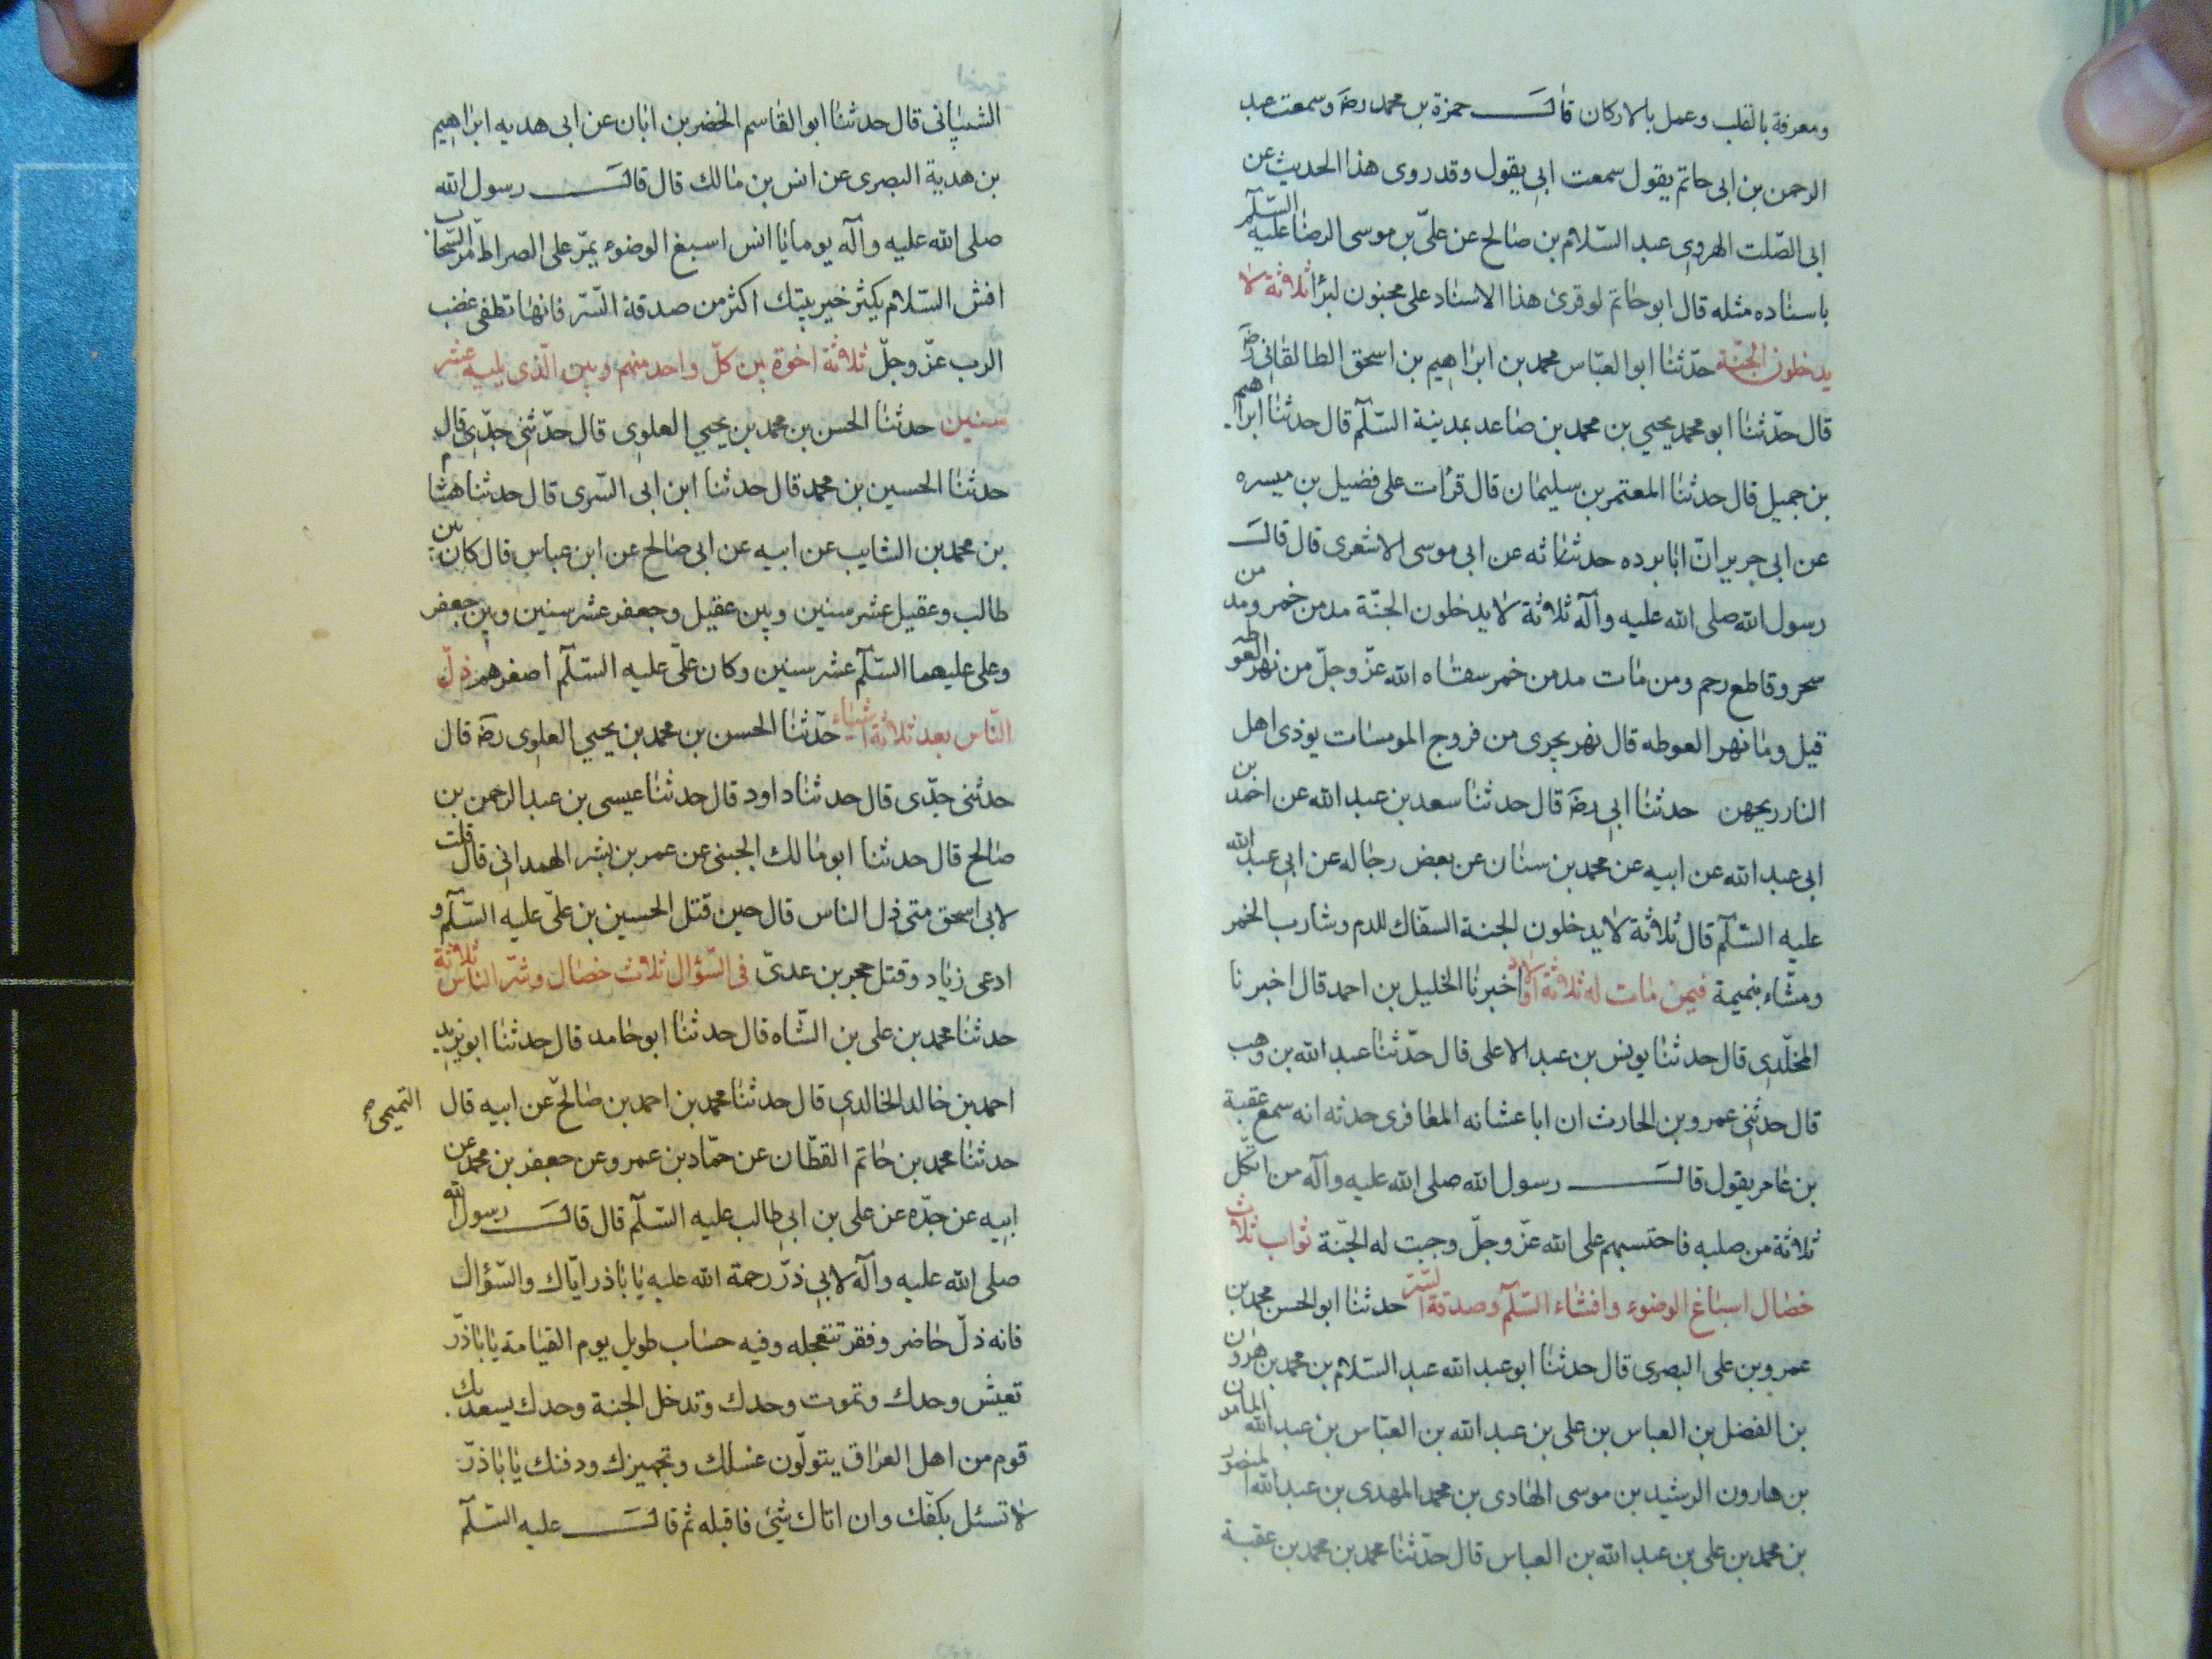 ومعرفة بالقلب وعمل بالاركان قال حمزة بن محمد رضه وسمعت عبد
الرحمن بن ابى حاتم يقول سمعت ابى يقول وقد روى هذا الحديث عن
ابى الصّلت الهروى عبد السّلام بن صالح عن علىّ بن موسى الرضا عليه السّلم
باسناده مثله قال ابو حاتم لو قرئ هذا الاسناد على مجنون لبرأ ثلاثة لا
يدخلون الجنّة حدّثنا ابو العبّاس محمد بن ابراهيم بن اسحق الطالقانى رضه
قال حدّثنا ابو محمد يحيى بن محمد بن صاعد بمدينة السّلم قال حدثنا ابراهيم
بن جميل قال حدثنا المعتمر بن سليمان قال قرات على فضيل بن ميسره
عن ابى جرير انّ ابا برده حدثناثه عن ابى موسى الاشعرى قال قال
رسول الله صلى الله عليه وآله ثلاثة لا يدخلون الجنّة مدمن خمر ومدمن
سحر وقاطع رحم ومن مات مدمن خمر سقاه الله عزّ وجلّ من نهر العوطه
قيل وما نهر العوطه قال نهر يجرى من فروج المومسات يوذى اهل
النار ريحهن حدثنا ابى رضه قال حدثنا سعد بن عبد الله عن احمد بن
ابى عبد الله عن ابيه عن محمد بن سنان عن بعض رجاله عن ابى عبد الله
عليه السّلم قال ثلاثة لا يدخلون الجنة السفّاك للدم وشارب الخمر
ومشّاء بنميمة فيمن مات له ثلاثة اولاد اخبرنا الخليل بن احمد قال اخبرنا
المخلّدى قال حدثنا يونس بن عبد الاعلى قال حدّثنا عبد الله بن وهب
قال حدثنى عمرو بن الحارث ان ابا عشانه المعافرى حدثه انه سمع عقبة
بن عامر يقول قال رسول الله صلى الله عليه وآله من اثكل
ثلاثة من صلبه فاحتسبهم على الله عزّ وجلّ وجبت له الجنّة ثواب ثلاث
خصال اسباغ الوضوء وافشاء السّلم وصدقة السّر حدثنا ابو الحسن محمد بن
عمرو بن على البصرى قال حدثنا ابو عبد الله عبد السّلام بن محمد بن هرون
بن الفضل بن العباس بن على بن عبد الله بن العبّاس بن عبد الله المامون
بن هارون الرشيد بن موسى الهادى بن محمد المهدى بن عبد الله المنصور
بن محمد بن على بن عبد الله بن العباس قال حدّثنا محمد بن محمد بن عقبة
الشيبانى قال حدثنا ابو القاسم الخضر بن ابان عن ابى هديه ابراهيم
بن هدية البصرى عن انس بن مالك قال قال رسول الله
صلى الله عليه وآله يوما يا انس اسبغ الوضوء يمرّ على الصراط مرّ السّحاب
افش السّلام يكثر خير بيتك اكثر من صدقة السّرّ فانها تطفى غضب
الرب عزّ وجلّ ثلاثة اخوة بين كلّ واحد منهم وبين الّذى يليه عشر
سنين حدثنا الحسن بن محمد بن يحيى العلوى قال حدّثنى جدّى قال
حدثنا الحسين بن محمد قال حدثنا ابن ابى السّرى قال حدثنا هشام
بن محمد بن السّايب عن ابيه عن ابى صالح عن ابن عباس قال كان بين
طالب وعقيل عشر سنين وبين عقيل وجعفر عشر سنين وبين جعفر
وعلى عليهما السّلم عشر سنين وكان علىّ عليه السّلم اصغرهم ذلّ
النّاس بعد ثلاثة اشياء حدّثنا الحسن بن محمد بن يحيى العلوى رضه قال
حدثنى جدّى قال حدثنا داود قال حدثنا عيسى بن عبد الرحمن بن
صالح قال حدثنا ابو مالك الجبنى عن عمر بن بشر الهمدانى قال قلت
لابى اسحق متى ذل الناس قال حين قتل الحسين بن علىّ عليه السّلم و
ادعى زياد وقتل حجر بن عدىّ فى السّؤال ثلاث خصال وشرّ الناس ثلاثة
حدثنا محمد بن على بن الشّاه قال حدثنا ابو حامد قال حدثنا ابو يزيد
احمد بن خالد الخالدى قال حدثنا محمد بن احمد بن صالح عن ابيه قال
التميمى صح
حدثنا محمد بن حاتم القطّان عن حمّاد بن عمرو عن جعفر بن محمد عن
ابيه عن جدّه عن على بن ابى طالب عليه السّلم قال قال رسول الله
صلى الله عليه وآله لابى ذرّ رحمة الله عليه يا باذر ايّاك والسّؤال
فانه ذلّ حاضر وفقر تتعجله وفيه حساب طويل يوم القيامة يا باذرّ
تعيش وحدك وتموت وحدك وتدخل الجنة وحدك يسعد بك
قوم من اهل العراق يتولّون غسلك وتجهيزك ودفنك يا باذرّ
لا تسئل بكفّك وان اتاك شئ فاقبله ثم قال عليه السّلم